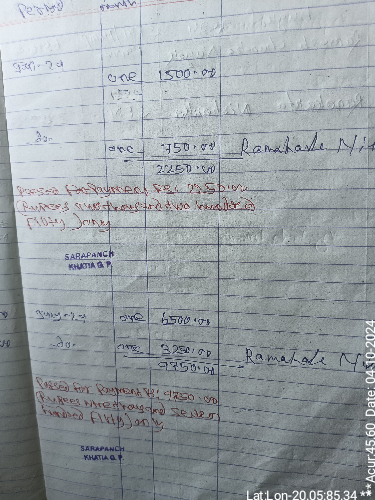 Period month
one 1500.00
do. one 750.00 Ramahade
2250.00
Passed for Payment Rs. 2250.00
(Rupees two thousand two hundred
fifty) only
SARAPANCH
KHATIA G.P.
one 6500.00
do. one 3250.00 Ramahade
9750.00
Passed for Payment Rs. 9750.00
(Rupees nine thousand seven
hundred fifty) only
SARAPANCH
KHATIA G.P.
Lat:Lon-20.05:85.34 *** Acur:45.60 Date: 04:10:2024